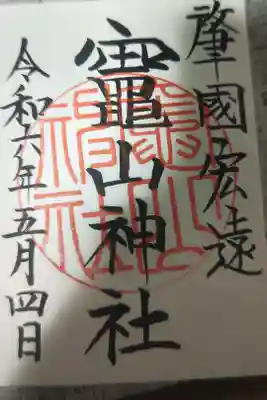 肇國宏遠
竈山神社
令和六年五月四日